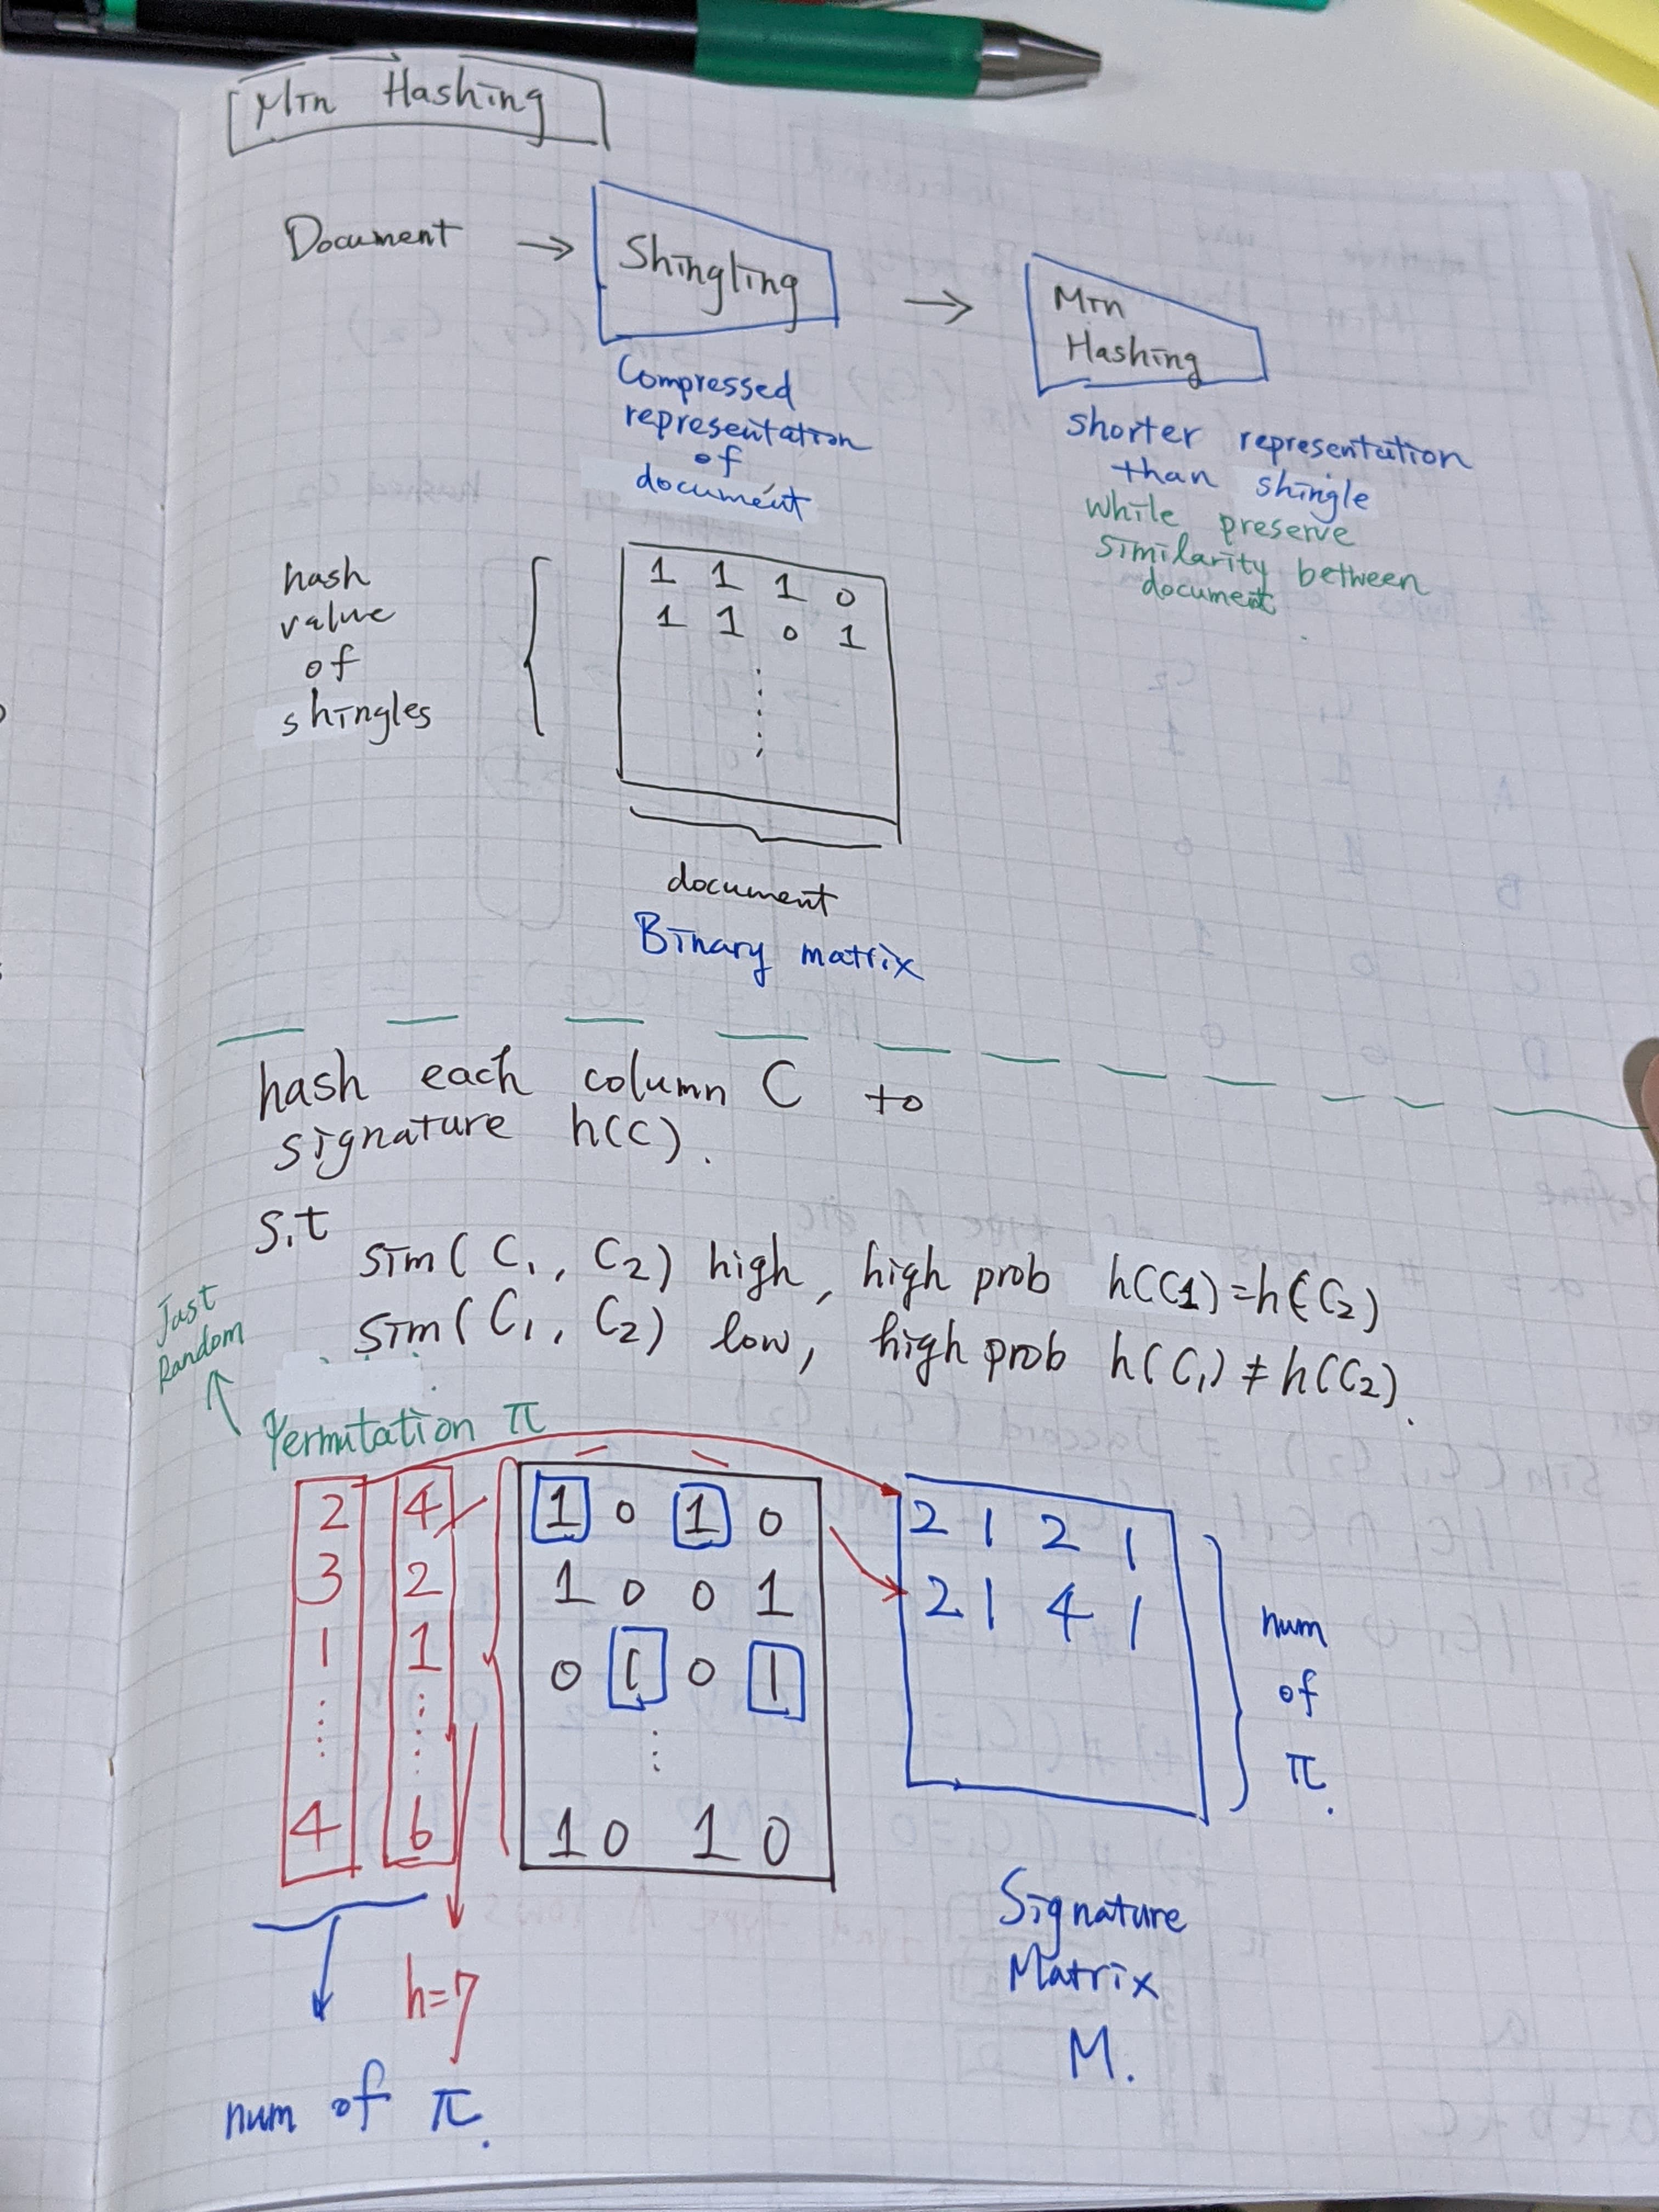 Min Hashing
Document → Shingling → Min
Hashing
Compressed
representation
of
document
shorter representation
than shingle
while preserve
similarity between
document
hash
value
of
shingles
1 1 1 0
1 1 0 1
document
Binary matrix
hash each column C to
signature h(C).
S.t
sim( C1, C2) high, high prob h(C1)=h(C2)
sim( C1, C2) low, high prob h(C1) ≠ h(C2).
Just
Random
Permutation π
2 4 1 0 1 0 2 1 2 1
3 2 1 0 0 1 2 1 4 1
1 1 0 1 0 1
4 6 1 0 1 0
num
of
π.
h=7
num of π.
Signature
Matrix
M.